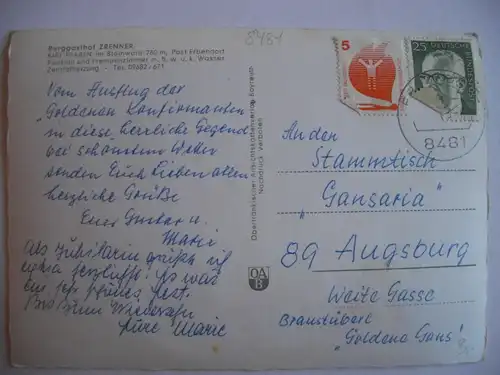 8481
Burggasthof ZRENNER
Kühle Pension und Fremdenzimmer m. fl. w. u. k. Wasser
Zentralheizung – Tel. 09682 - 671
Vom Ausflug der
"Goldenen Konfirmanten
in diese herrliche Gegend
bei schönstem Wetter
senden Euch Lieben allen
herzliche Grüße
Euer Gustav u.
Marie
Als Jubilarin grüße ich
herzlichst! Es war
ein schönes Fest.
Bis zum Wiedersehn
Eure Marie
Oberfränkischer Ansichtskartenverlag Bayreuth
Nachdruck Verboten
OA
B
5
25
DEUTSCHE
8481
An den
Stammtisch
"Gansaria"
89 Augsburg
Weite Gasse
Braustüberl
"Goldene Gans!